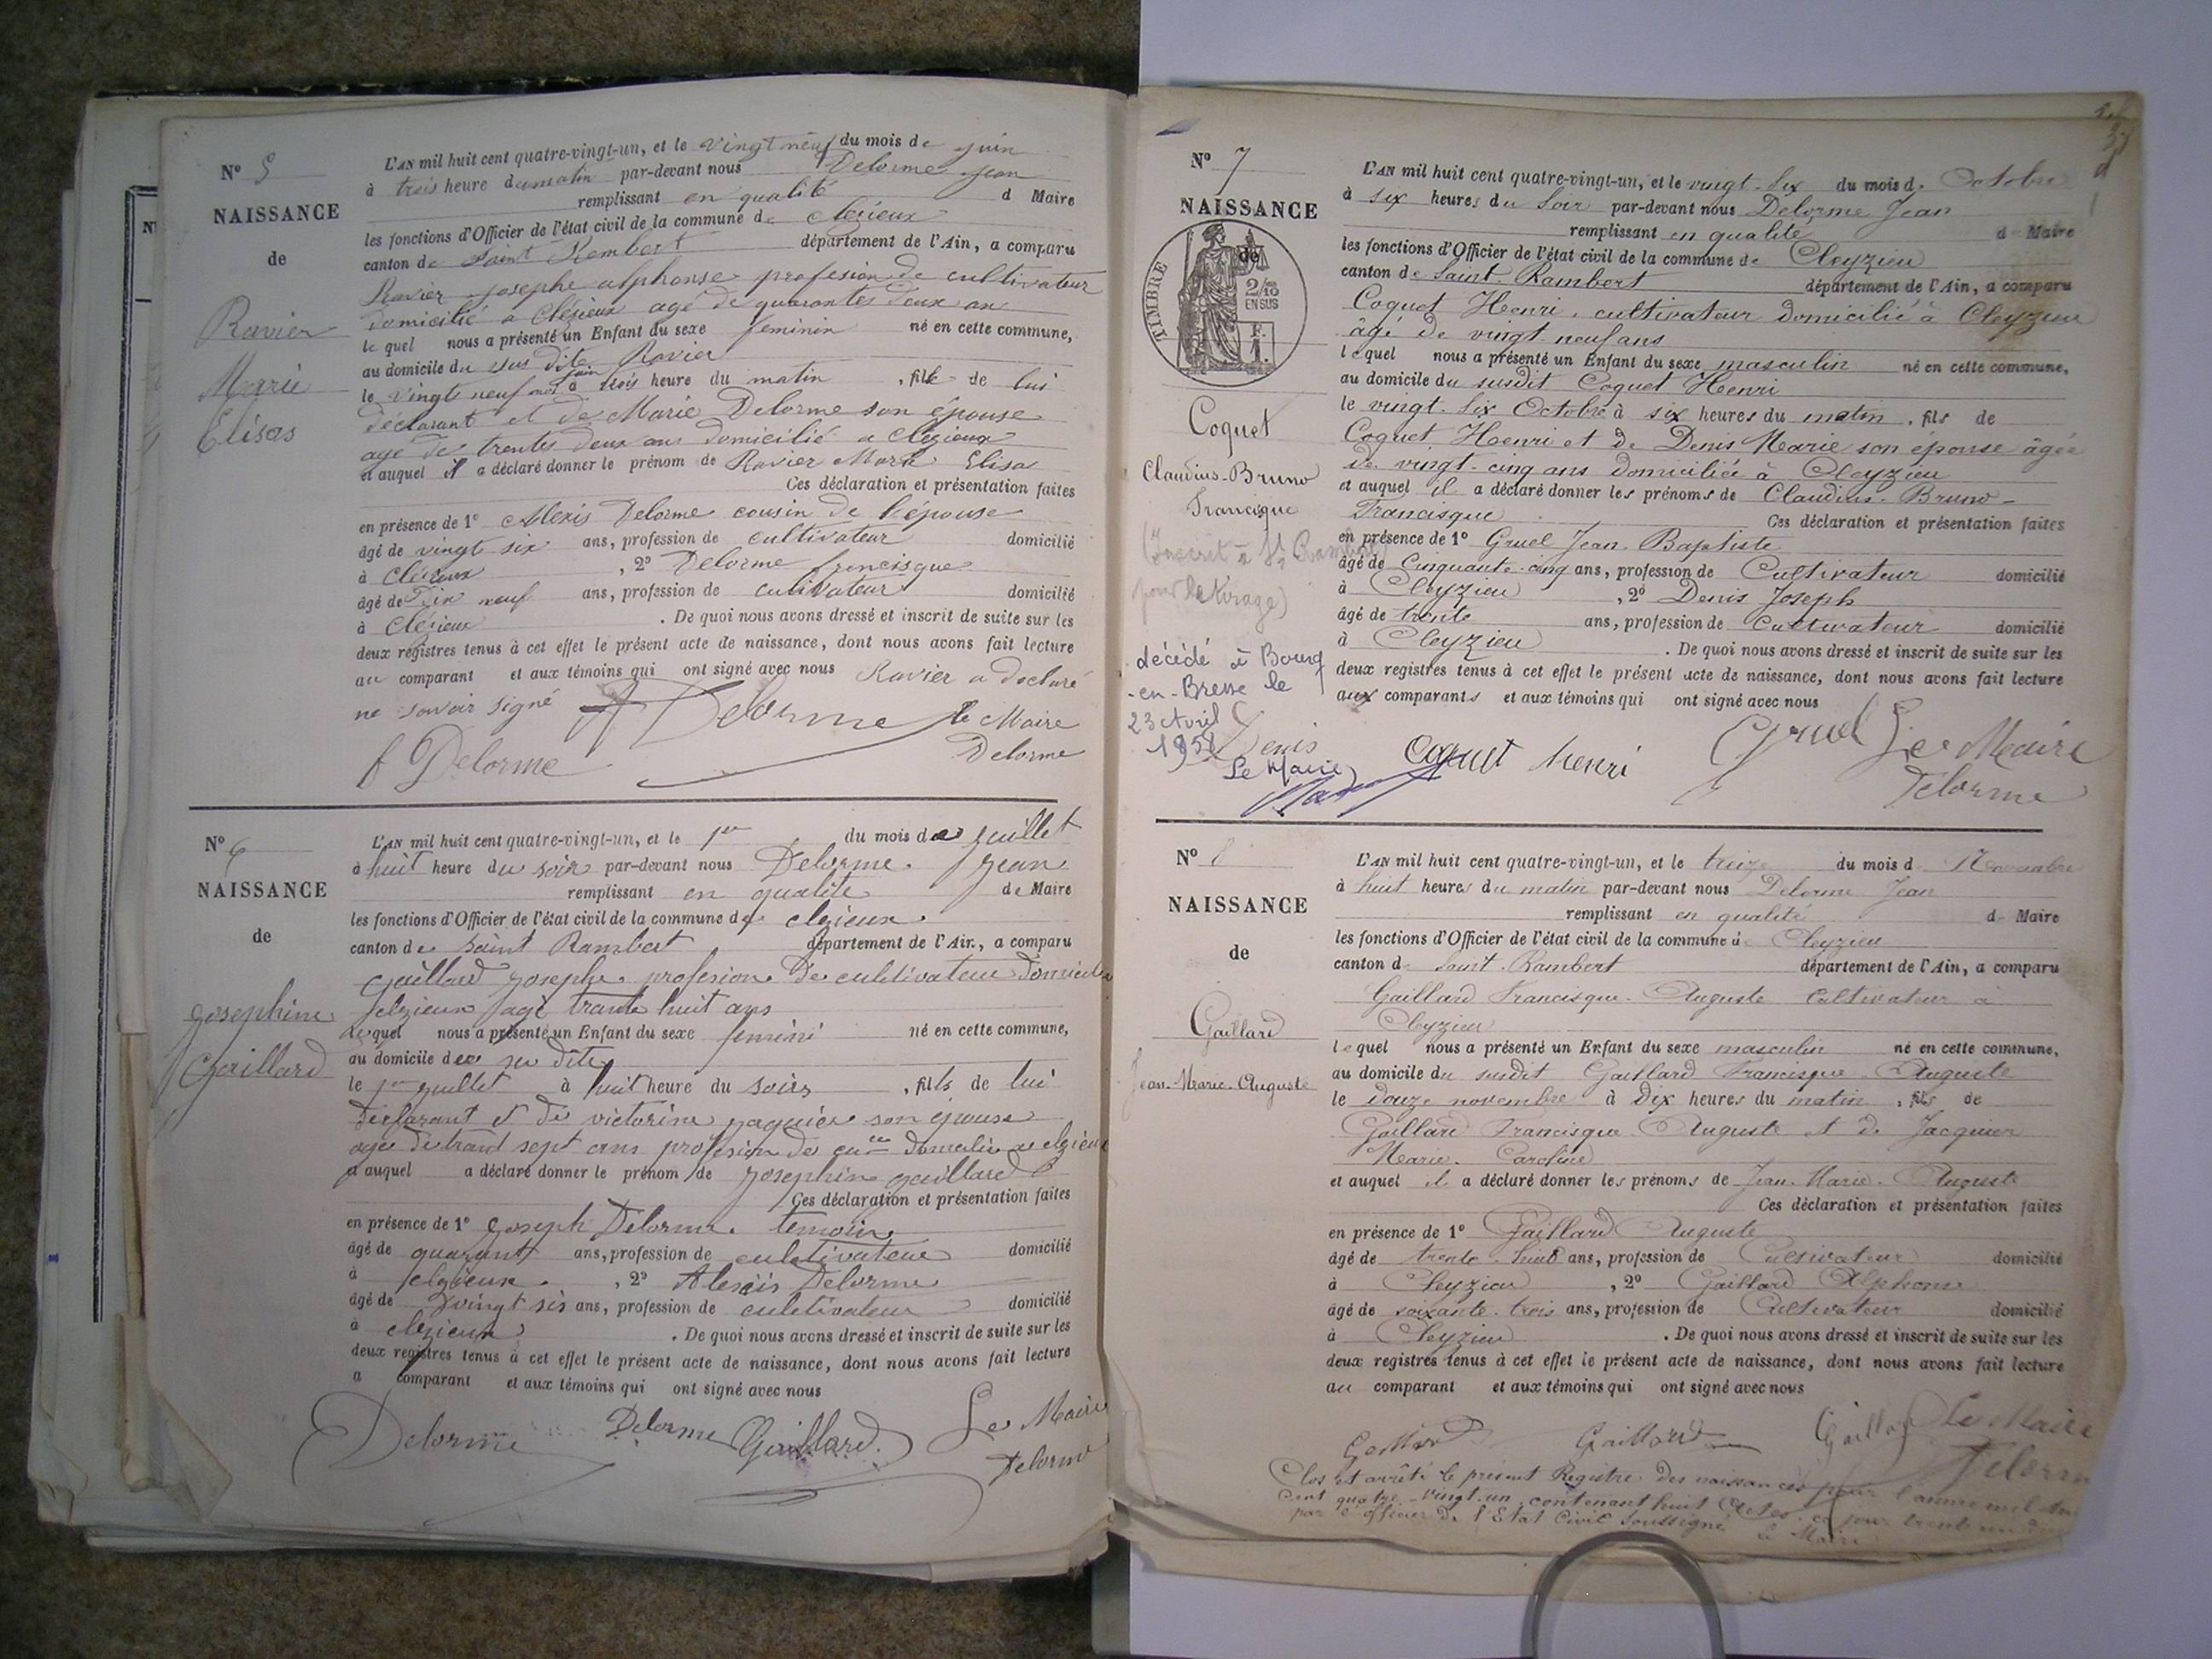 N° 5
NAISSANCE
de
Ravier
Marie
Elisas
L'AN mil huit cent quatre-vingt-un, et le vingt neuf du mois de juin
à trois heure du matin par-devant nous Delorme jean
remplissant en qualité d Maire
les fonctions d'Officier de l'état civil de la commune de
canton de Saint Rembert département de l'Ain, a comparu
Ravier josephe alphonse profesion de cultivateur
domicilié a agé de quarantes deux an
le quel nous a présenté un Enfant du sexe feminin né en cette commune,
au domicile du sus dite Ravier
le vingts neuf juin à trois heure du matin , fille de lui
déclarant et de Marie Delorme son épouse
agé de trentes deux ans domicilié a
et auquel il a déclaré donner le prénom de Ravier Marie Elisa
Ces déclaration et présentation faites
en présence de 1° Alexis Delorme cousin de l'épouse
âgé de vingt six ans, profession de cultivateur domicilié
à , 2° Delorme francisque
âgé de Dix neuf ans, profession de cutivateur domicilié
à . De quoi nous avons dressé et inscrit de suite sur les
deux registres tenus à cet effet le présent acte de naissance, dont nous avons fait lecture
au comparant et aux témoins qui ont signé avec nous Ravier a declaré
ne savoir signé A Delorme le Maire
f Delorme Delorme
N° 6
NAISSANCE
de
josephine
Gaillard
L'AN mil huit cent quatre-vingt-un, et le 1er du mois de juillet
à huit heure du soir par-devant nous Delorme jean
remplissant en qualite de Maire
les fonctions d'Officier de l'état civil de la commune de
canton de saint Rambert département de l'Ain, a comparu
gaillard josephe profesion de cultivateur
agé trante huit ans
Le quel nous a présenté un Enfant du sexe femini né en cette commune,
au domicile du su dite
le 1er juillet à huit heure du soir , fils de lui
et de victorine son épouse
age de trant sept ans profesion de
et auquel a déclaré donner le prénom de josephine gaillard
Ces déclaration et présentation faites
en présence de 1° joseph Delorme temoin
âgé de quarant ans, profession de culetivateur domicilié
à , 2° Alexis Delorme
âgé de vingt sis ans, profession de culetivateur domicilié
à . De quoi nous avons dressé et inscrit de suite sur les
deux registres tenus à cet effet le présent acte de naissance, dont nous avons fait lecture
a comparant et aux témoins qui ont signé avec nous
Delorme Delorme Gaillard Le Maire
Delorme
N° 7
NAISSANCE
de
TIMBRE
2/10
EN SUS
F.
1.
Coquet
Claudius-Bruno
Francisque
(Inscrit à St Rambert
pour le tirage)
décédé à Bourg
-en-Bresse le
23 Avril
1958
Le Maire
L'AN mil huit cent quatre-vingt-un, et le vingt-six du mois d Octobre
à six heures du soir par-devant nous Delorme Jean
remplissant en qualité d Maire
les fonctions d'Officier de l'état civil de la commune de Cleyzieu
canton de Saint-Rambert département de l'Ain, a comparu
Coquet Henri, cultivateur domicilié à Cleyzieu
âgé de vingt-neuf ans
lequel nous a présenté un Enfant du sexe masculin né en cette commune,
au domicile du susdit Coquet Henri
le vingt-six Octobre à six heures du matin , fils de
Coquet Henri et de Denis Marie son épouse âgée
de vingt-cinq ans domiciliée à Cleyzieu
et auquel il a déclaré donner les prénoms de Claudius-Bruno-
Francisque Ces déclaration et présentation faites
en présence de 1° Gruel Jean-Baptiste
âgé de Cinquante-cinq ans, profession de Cultivateur domicilié
à Cleyzieu , 2° Denis Joseph
âgé de trente ans, profession de Cultivateur domicilié
à Cleyzieu . De quoi nous avons dressé et inscrit de suite sur les
deux registres tenus à cet effet le présent acte de naissance, dont nous avons fait lecture
aux comparants et aux témoins qui ont signé avec nous
Denis Coquet Henri Gruel Le Maire
Delorme
N° 8
NAISSANCE
de
Gaillard
Jean-Marie-Auguste
L'AN mil huit cent quatre-vingt-un, et le treize du mois d Novembre
à huit heures du matin par-devant nous Delorme Jean
remplissant en qualité d Maire
les fonctions d'Officier de l'état civil de la commune de Cleyzieu
canton d Saint-Rambert département de l'Ain, a comparu
Gaillard Francisque-Auguste Cultivateur à
Cleyzieu
lequel nous a présenté un Enfant du sexe masculin né en cette commune,
au domicile du susdit Gaillard Francisque-Auguste
le douze novembre à dix heures du matin , fils de
Gaillard Francisque-Auguste et de Jacquier
Marie-Caroline
et auquel il a déclaré donner les prénoms de Jean-Marie-Auguste
Ces déclaration et présentation faites
en présence de 1° Gaillard Auguste
âgé de trente-huit ans, profession de Cultivateur domicilié
à Cleyzieu , 2° Gaillard Alphonse
âgé de soixante-trois ans, profession de Cultivateur domicilié
à Cleyzieu . De quoi nous avons dressé et inscrit de suite sur les
deux registres tenus à cet effet le présent acte de naissance, dont nous avons fait lecture
au comparant et aux témoins qui ont signé avec nous
Gaillard Gaillard Gaillard Le Maire
Delorme
Clos et arrêté le présent Registre des naissances pour l'année mil huit
cent quatre-vingt-un, contenant huit Actes, ce jour trente un
par l'officier de l'Etat Civil soussigné
Le Maire